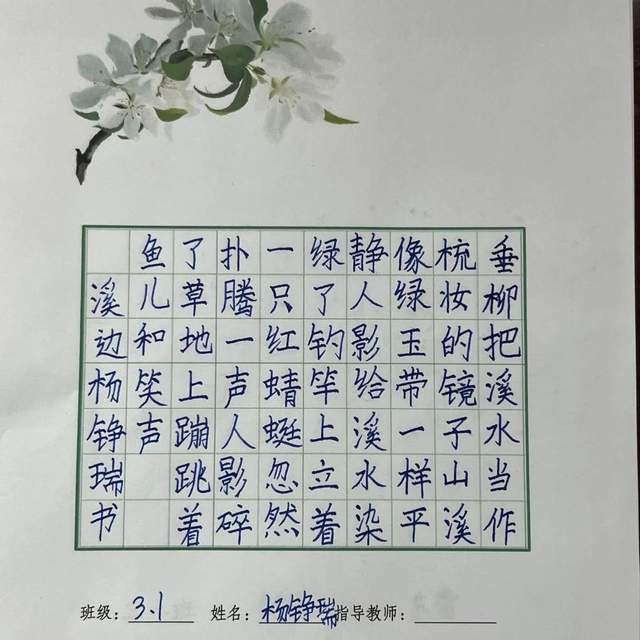 垂柳把溪水当作
梳妆的镜子山溪
像绿玉带一样平
静人影给溪水染
绿了钓竿上立着
一只红蜻蜓忽然
扑腾一声人影碎
了草地上蹦跳着
鱼儿和笑声
溪边杨铮瑞书
班级：3.1 姓名：杨铮瑞 指导教师：